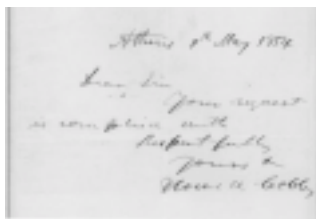 Athens 9th May 1854
Dear Sir
Your request
is complied with
Respectfully
Yours &
Howell Cobb